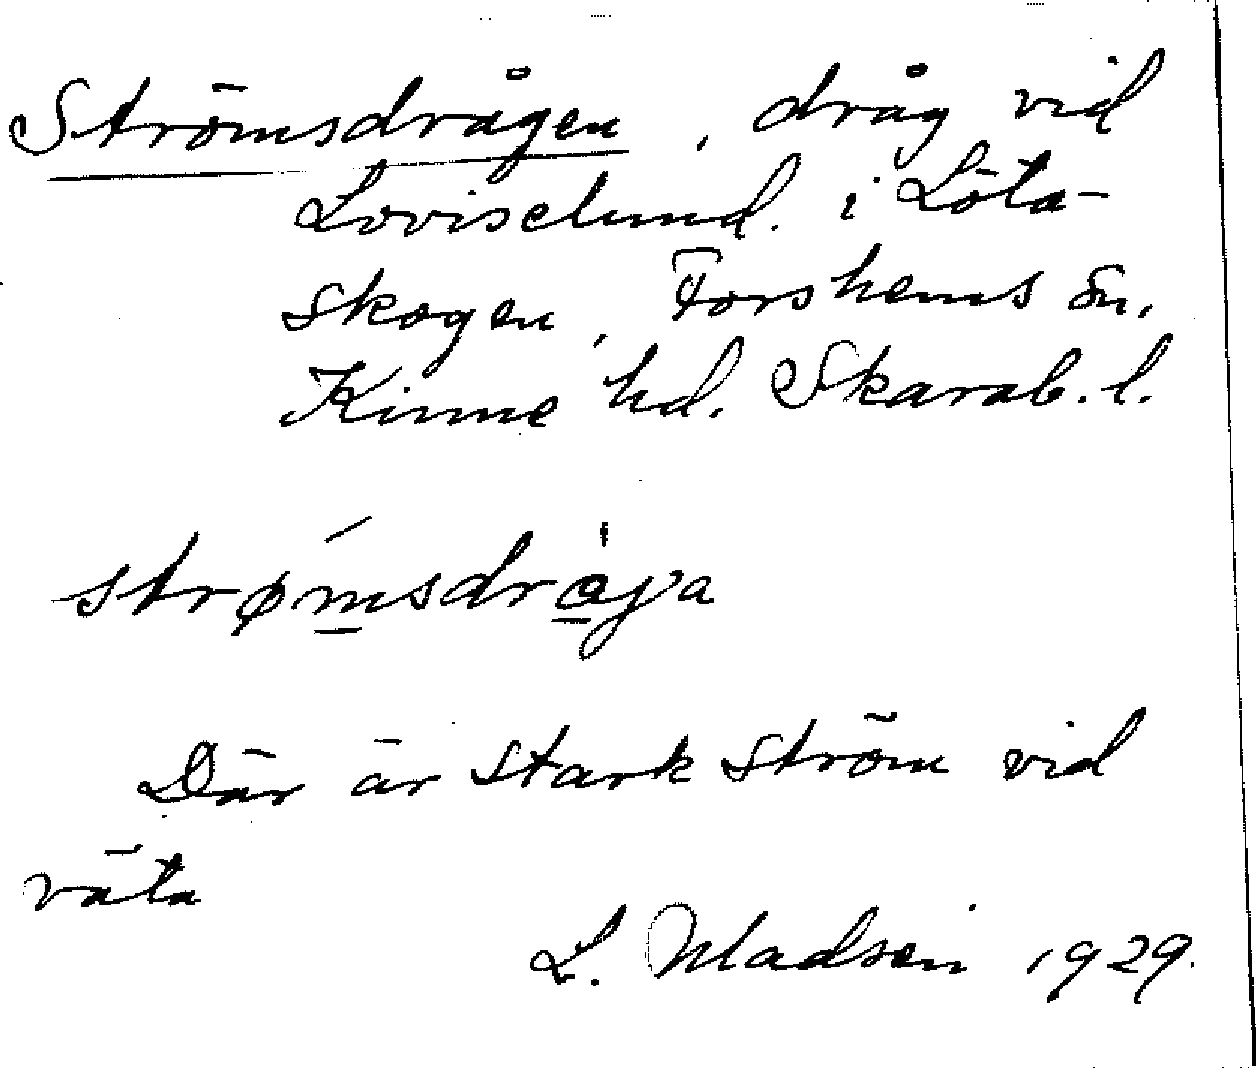 Strömsdrågen, dråg vid
Loviselund i Löta-
skogen, Forshems sn,
Kinne hd. Skarab. l.
strømsdråga
Där är stark ström vid
väta
L. Madsen 1929.